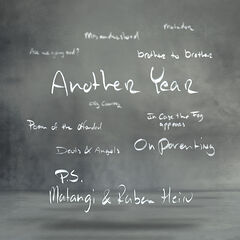 Matador
Misunderstood
Are we going mad?
brother to brother
Another Year
Big Country
In Case the Fog
appears
Poem of the Stranded
Devils & Angels
On Parenting
P.S.
Matangi & Ruben Hein